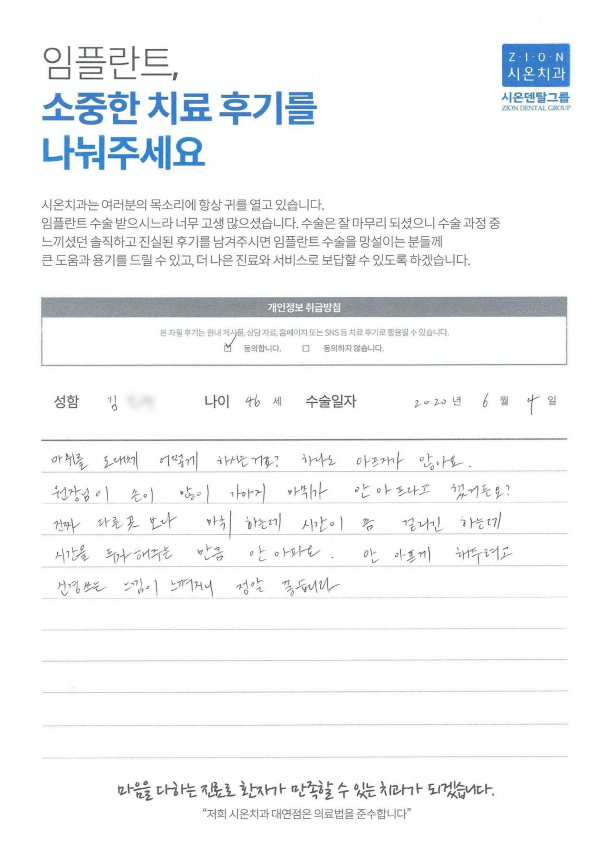 임플란트,
소중한 치료 후기를
나눠주세요
Z·I·O·N
시온치과
시온덴탈그룹
ZION DENTAL GROUP
시온치과는 여러분의 목소리에 항상 귀를 열고 있습니다.
임플란트 수술 받으시느라 너무 고생 많으셨습니다. 수술은 잘 마무리 되셨으니 수술 과정 중
느끼셨던 솔직하고 진실된 후기를 남겨주시면 임플란트 수술을 망설이는 분들께
큰 도움과 용기를 드릴 수 있고, 더 나은 진료와 서비스로 보답할 수 있도록 하겠습니다.
개인정보 취급방침
본 자필 후기는 원내 게시물, 상담 자료, 홈페이지 또는 SNS 등 치료 후기로 활용될 수 있습니다.
동의합니다. 동의하지 않습니다.
성함 김 나이 46 세 수술일자 2020 년 6 월 4 일
마취를 도대체 어떻게 하시는거죠? 하나도 아프지가 않아요.
원장님이 손이 많이 가야지 마취가 안아프다고 했거든요?
진짜 다른곳 보다 마취 하는데 시간이 좀 걸리긴 하는데
시간을 투자해주는 만큼 안아파요. 안 아프게 해주려고
신경쓰는 느낌이 느껴지니 정말 좋습니다
마음을 다하는 진료로 환자가 만족할 수 있는 치과가 되겠습니다.
“저희 시온치과 대연점은 의료법을 준수합니다”